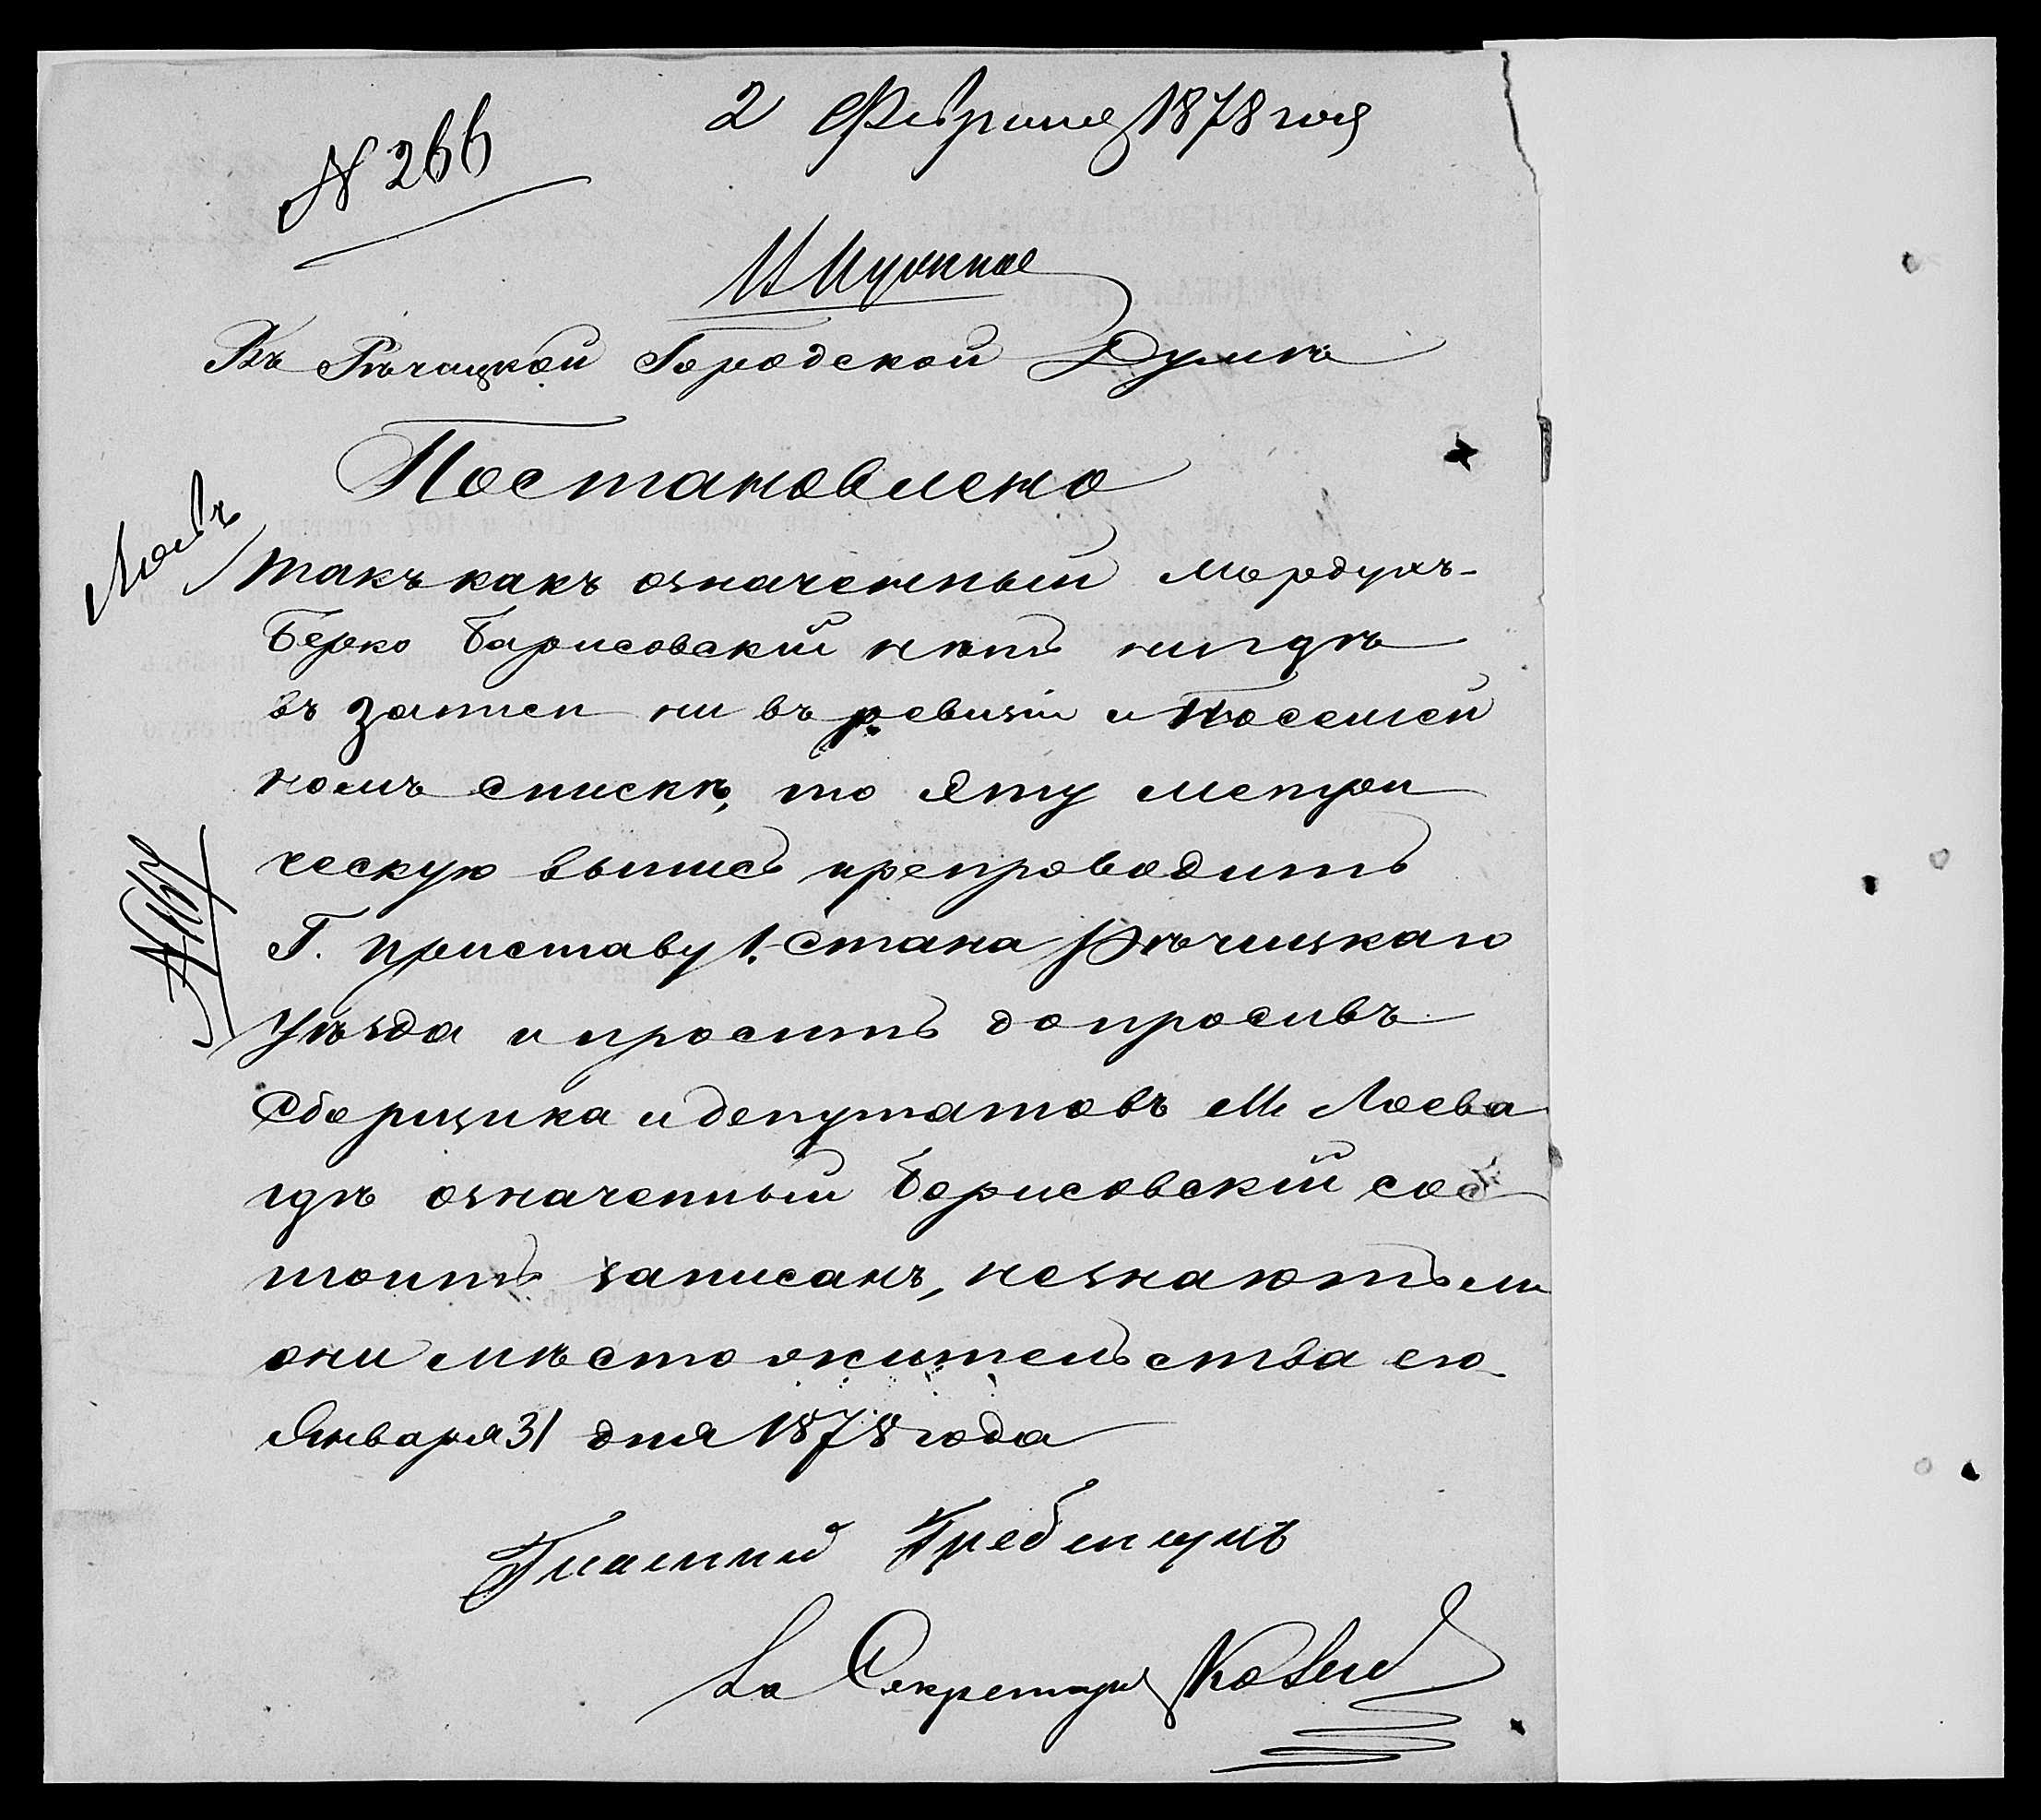 2 Февраля 1878 года
№ 266
Въ Рѣчицкой Городской Думѣ
Постановлено
Лоевъ
такъ какъ означенный Мордухъ-
Берко Барисовскій нѣтъ нигдѣ
въ записи ни въ ревизіи и Посемей
номъ спискѣ, то эту метри
ческую выпись препроводить
Г. Приставу 1. Стана Рѣчицкаго
Уѣзда и просить допросивъ
Сборщика и депутатовъ М Лоева
гдѣ означенный Борисовскій сос
тоитъ записанъ, незнаютъ ли
они мѣсто жительства его
Января 31 дня 1878 года
Гласный Гребенщикъ
За Секретаря